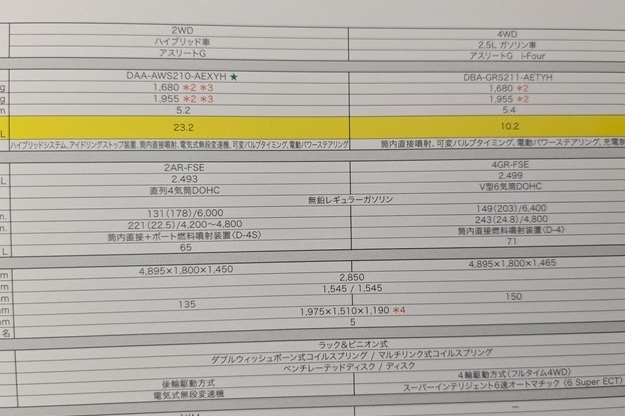 2WD 4WD
ハイブリッド車 2.5L ガソリン車
アスリートG アスリートG i-Four
DAA-AWS210-AEXYH★ DBA-GRS211-AETYH
g 1,680 *2 *3 1,680 *2
g 1,955 *2 *3 1,955 *2
m 5.2 5.4
L 23.2 10.2
ハイブリッドシステム、アイドリングストップ装置、筒内直接噴射、電気式無段変速機、可変バルブタイミング、電動パワーステアリング 筒内直接噴射、可変バルブタイミング、電動パワーステアリング、充電制
2AR-FSE 4GR-FSE
L 2.493 2.499
直列4気筒DOHC V型6気筒DOHC
無鉛レギュラーガソリン
n. 131(178)/6,000 149(203)/6,400
n. 221(22.5)/4,200〜4,800 243(24.8)/4,800
筒内直接+ポート燃料噴射装置〈D-4S〉 筒内直接燃料噴射装置〈D-4〉
L 65 71
m 4,895×1,800×1,450 4,895×1,800×1,465
m 2,850
mm 1,545 / 1,545
mm 135 150
mm 1,975×1,510×1,190 *4
名 5
ラック&ピニオン式
ダブルウィッシュボーン式コイルスプリング / マルチリンク式コイルスプリング
ベンチレーテッドディスク / ディスク
後輪駆動方式 4輪駆動方式(フルタイム4WD)
電気式無段変速機 スーパーインテリジェント6速オートマチック〈6 Super ECT〉